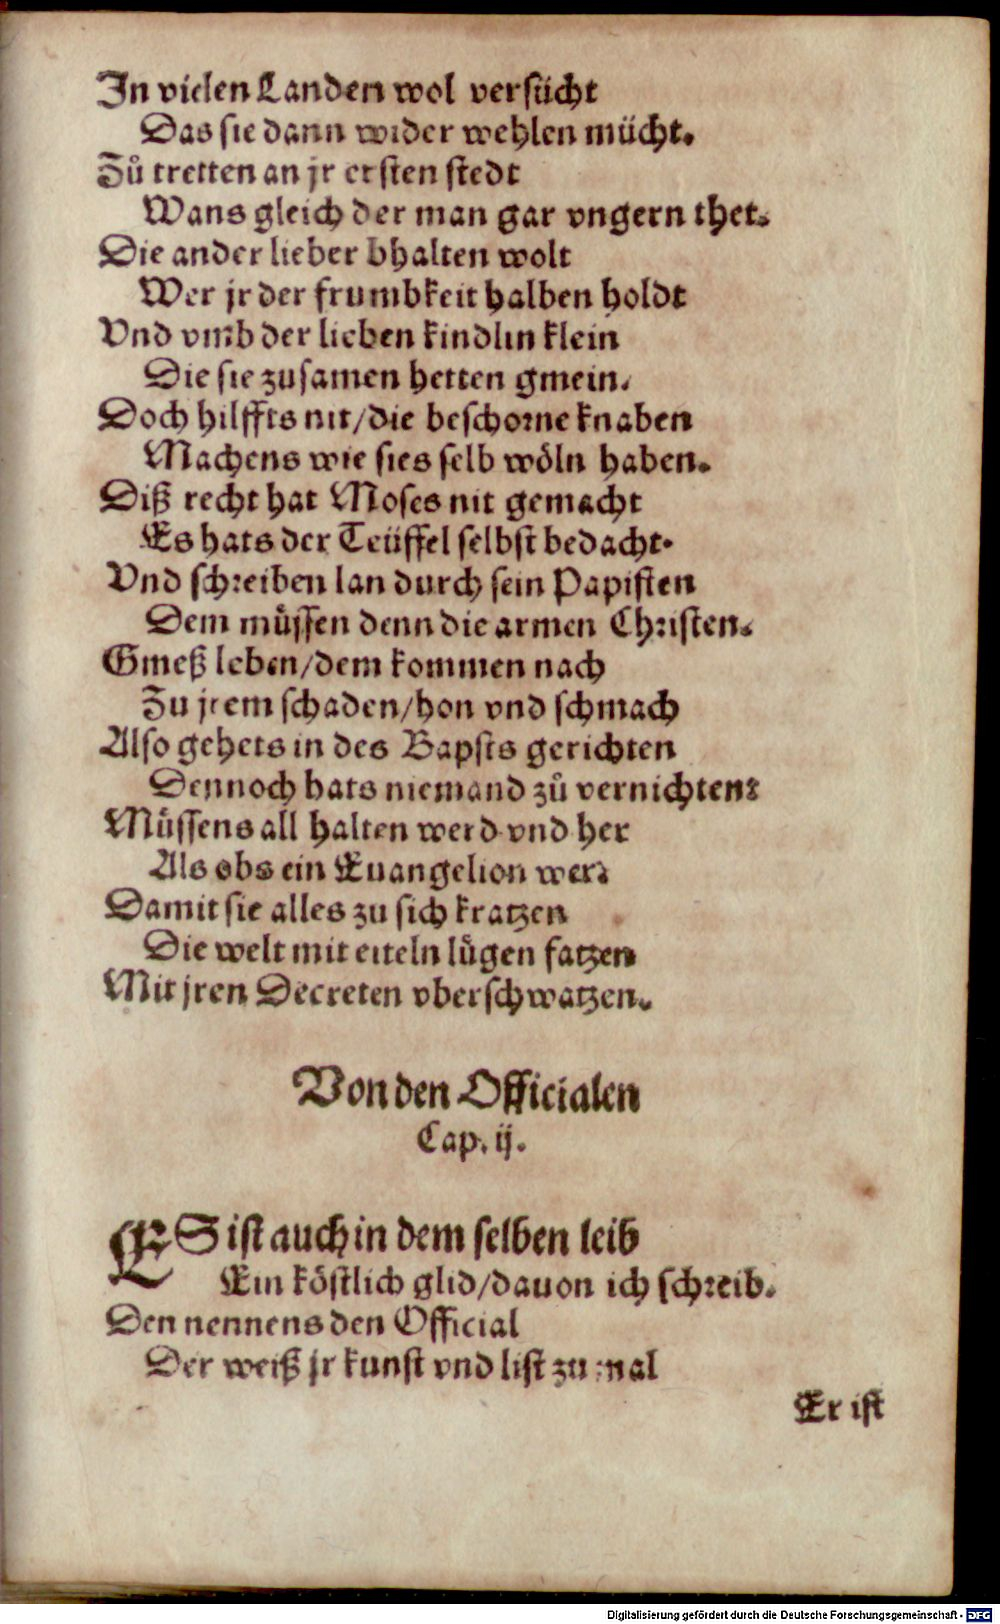 In vielen Landen wol versücht
Das sie dann wider wehlen mücht.
Zů tretten an jr ersten stedt
Wans gleich der man gar vngern thet.
Die ander lieber bhalten wolt
Wer jr der frumbkeit halben holdt
Vnd vmb der lieben kindlin klein
Die sie zusamen hetten gmein.
Doch hilffts nit/die beschorne knaben
Machens wie sies selb wöln haben.
Diß recht hat Moses nit gemacht
Es hats der Teüffel selbst bedacht.
Vnd schreiben lan durch sein Papisten
Dem můssen denn die armen Christen.
Gmeß leben/dem kommen nach
Zu jrem schaden/hon vnd schmach
Also gehets in des Bapsts gerichten
Dennoch hats niemand zů vernichten:
Můssens all halten werd vnd her
Als obs ein Euangelion wer:
Damit sie alles zu sich kratzen
Die welt mit eiteln lůgen fatzen
Mit jren Decreten vberschwatzen.
Von den Officialen
Cap. ij.
ES ist auch in dem selben leib
Ein köstlich glid/dauon ich schreib.
Den nennens den Official
Der weiß jr kunst vnd list zumal
Er ist
Digitalisierung gefördert durch die Deutsche Forschungsgemeinschaft - DFG